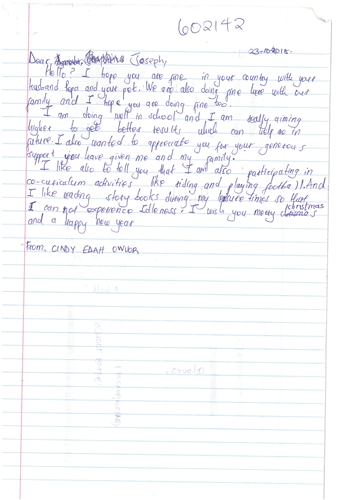 602142
23-10-2018.
Dear, Joseph,
Hello? I hope you are fine in your country with your
husband and your pet. We are also doing fine here with our
family and I hope you are doing fine too.
I am doing well in school and I am really aiming
higher to get better results which can help me in
future. I also wanted to appreciate you for your generous
support you have given me and my family.
I like also to tell you that I am also participating in
co-curiculum activities like riding and playing football. And
I like reading story books during my times so that
I can not experience Idleness. I wish you merry christmas
and a happy new year
From, CINDY EDAH OWUOR